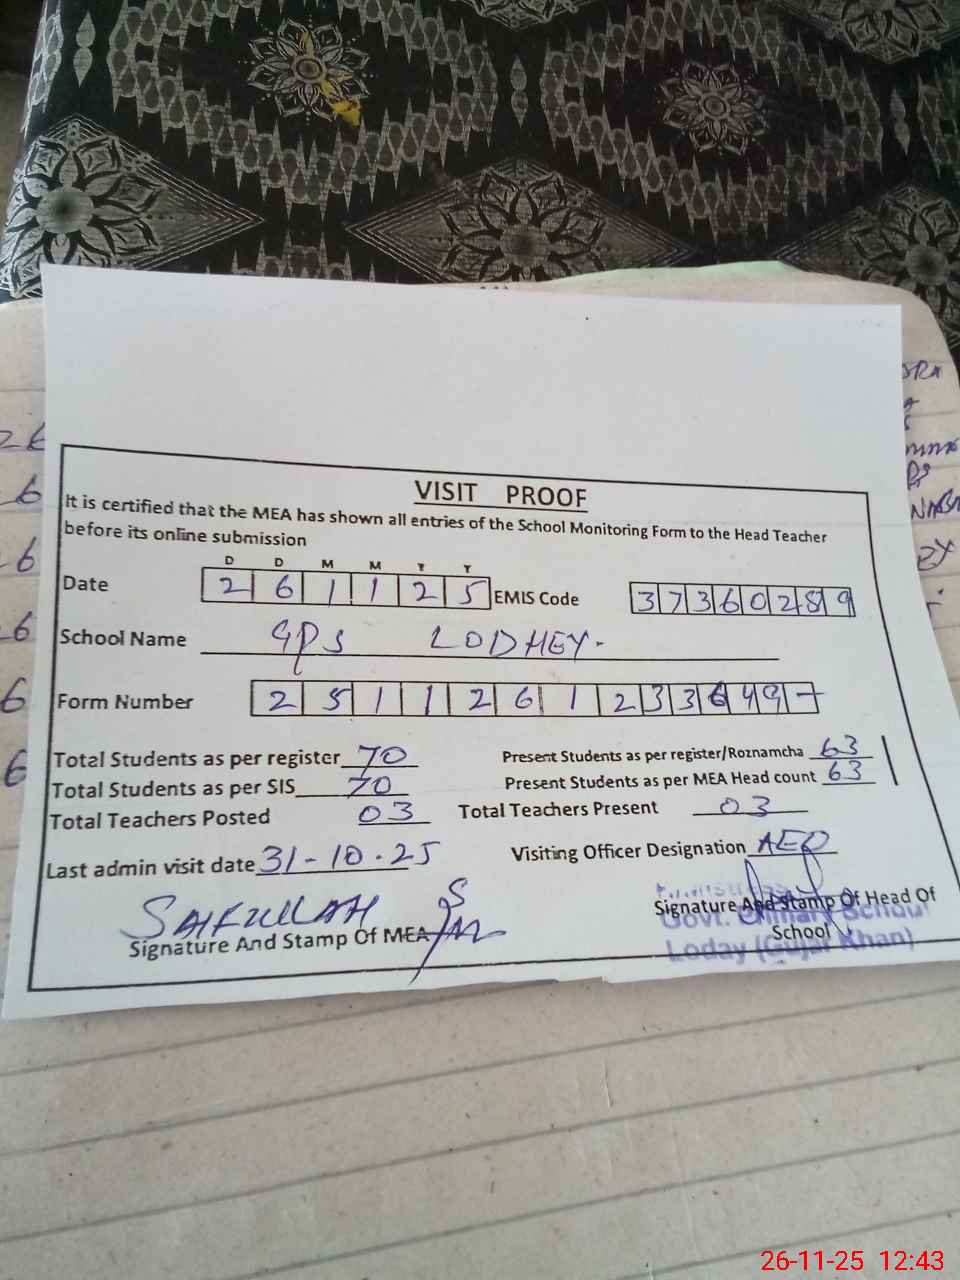 VISIT PROOF
It is certified that the MEA has shown all entries of the School Monitoring Form to the Head Teacher
before its online submission
D D M M Y Y
Date 2 6 1 1 2 5 EMIS Code 3 7 3 6 0 2 8 9
School Name GPS LODHEY.
Form Number 2 5 1 1 2 6 1 2 3 3 6 4 9 -
Total Students as per register 70 Present Students as per register/Roznamcha 63
Total Students as per SIS 70 Present Students as per MEA Head count 63
Total Teachers Posted 03 Total Teachers Present 03
Last admin visit date 31-10.25 Visiting Officer Designation AEO
SAIFULLAH
Signature And Stamp Of MEA
Signature And Stamp Of Head Of
School
Govt. Primary School
Loday (Gujar Khan)
26-11-25 12:43